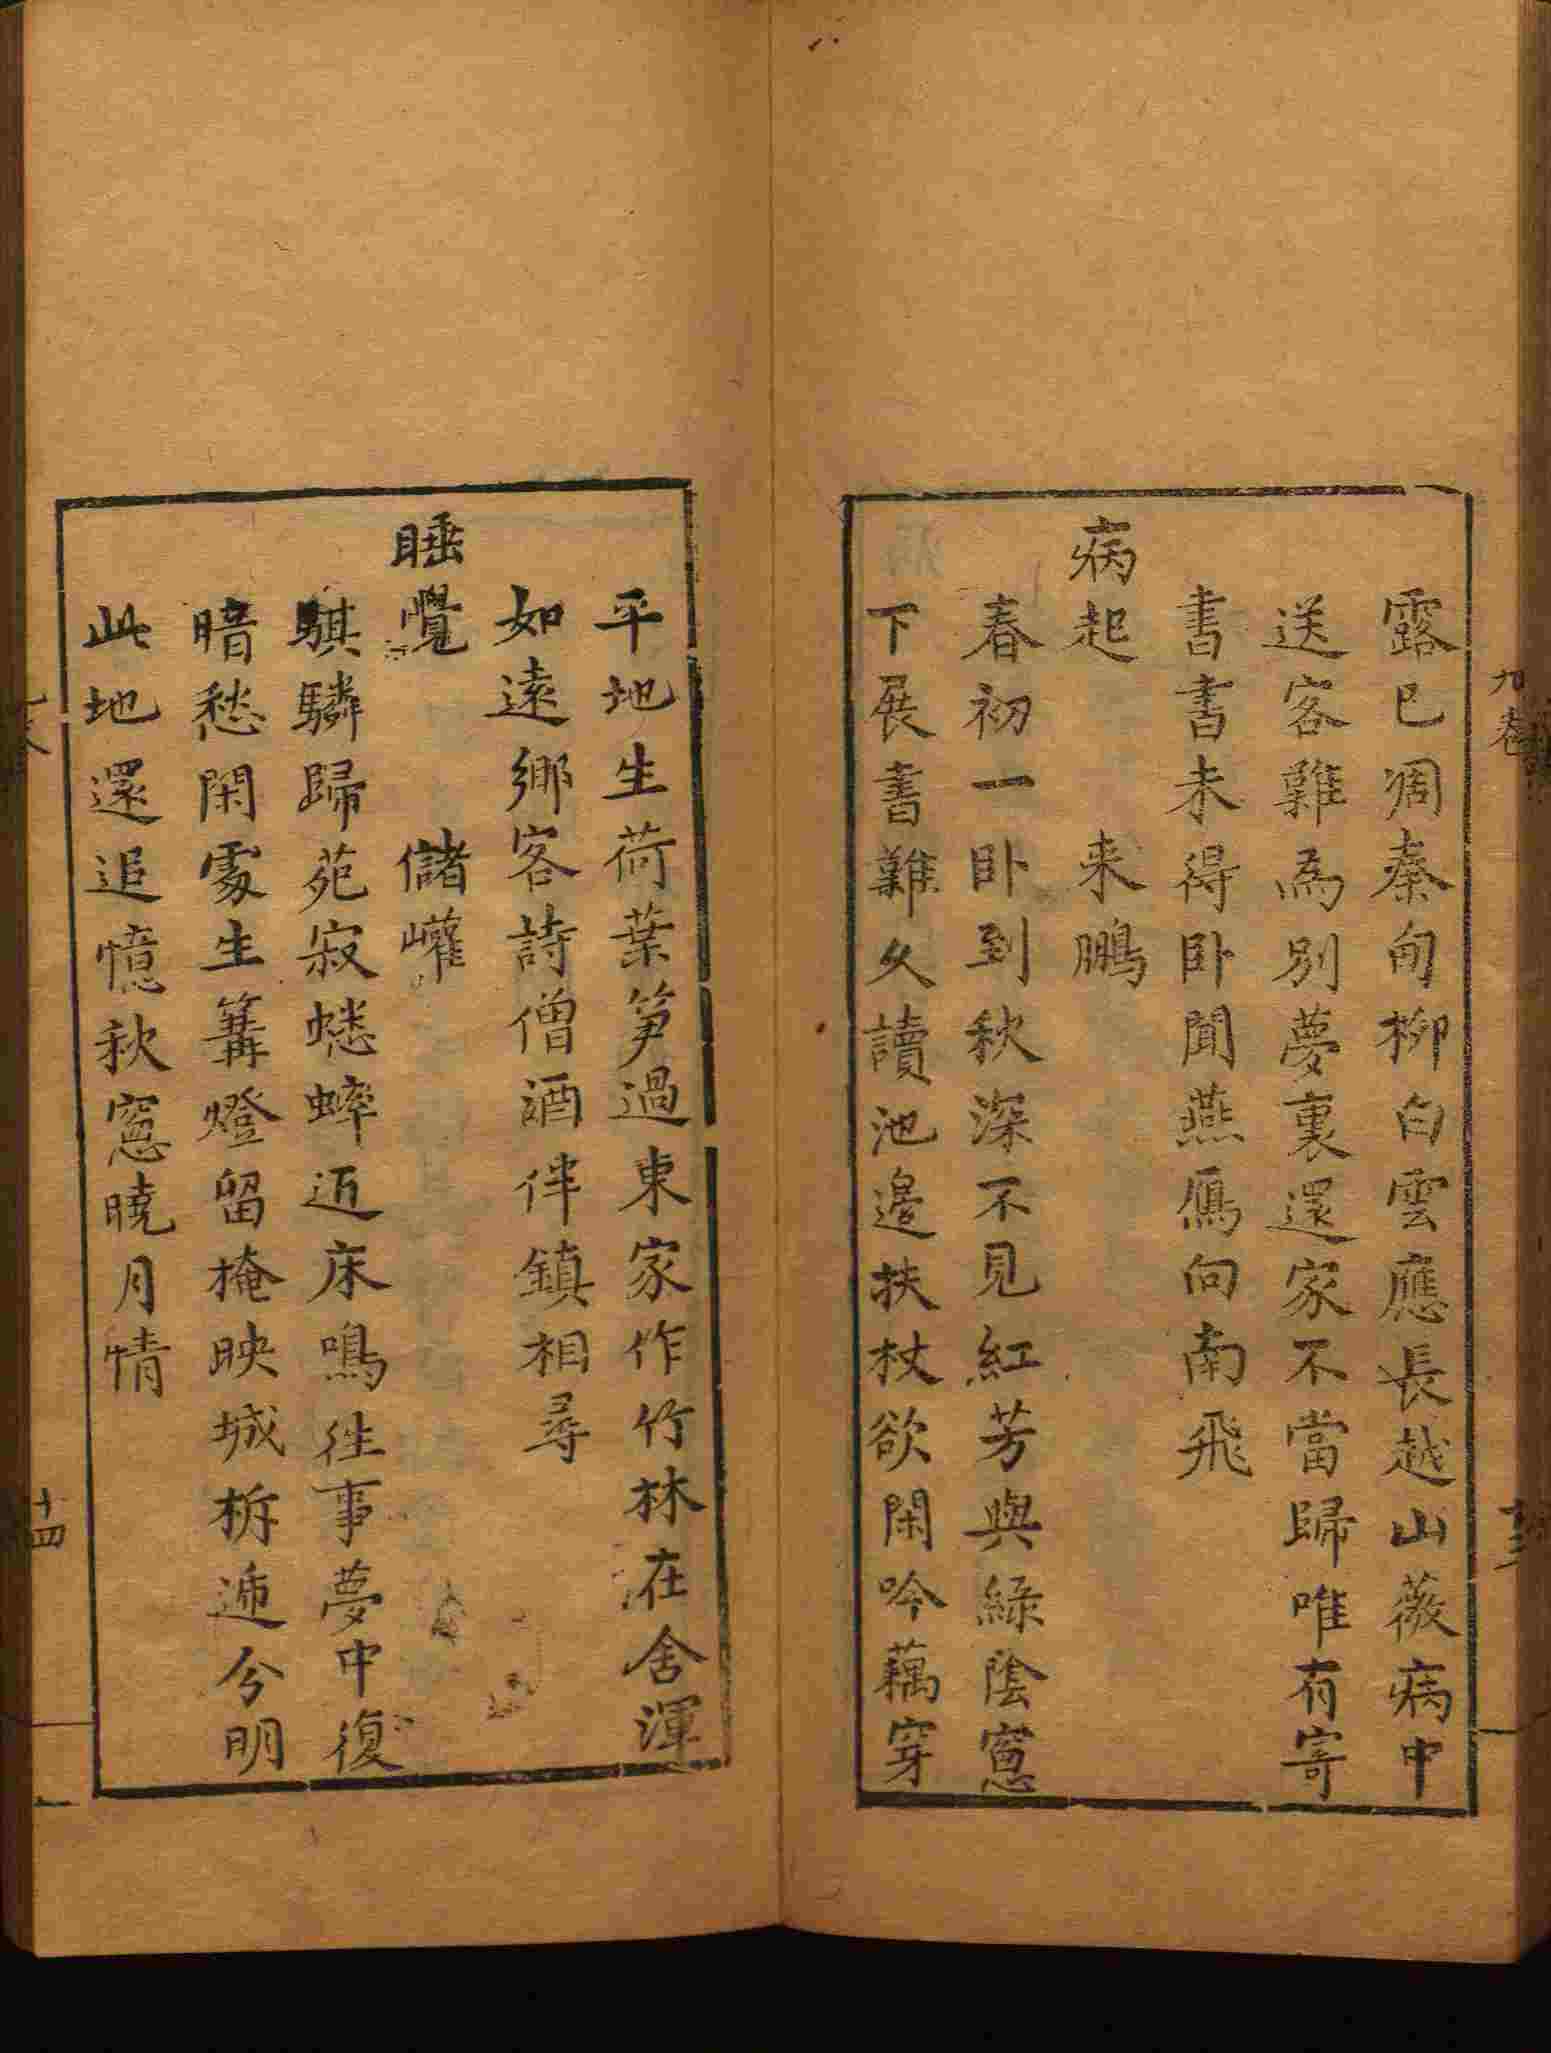 露已凋秦甸柳白雲應長越山薇病中
送客難為別夢裏還家不當歸唯有寄
書書未得卧聞燕鴈向南飛
病起　来鵬
春初一卧到秋深不見紅芳與綠陰窓
下展書難久讀池邊扶杖欲閑吟藕穿
平地生荷葉笋過東家作竹林在舍渾
如遠鄉客詩僧酒伴鎮相尋
睡覺　儲巏
騏驎歸苑寂蟋蟀近床鳴往事夢中復
暗愁閑處生篝燈留掩映城柝遞分明
此地還追憶秋窓曉月情
九卷
十三
十四